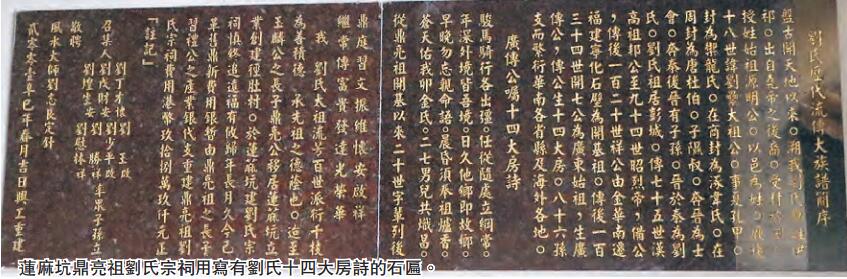 劉氏歷代流傳大族譜簡序
盤古開天地以來。溯我劉氏
祁。出自堯帝之後裔。受封於
授姓始祖源明公。以邑為姓。歷後
十八世諱劉累大祖公。事夏孔甲。
封為御龍氏。在商封為豕韋氏。在
周封為唐杜伯。子隰叔。奔晉為士
會。奔秦後晉有子孫。晉於秦為劉
氏。劉氏祖居彭城。傳七十五世漢
高祖邦公至九十四世昭烈帝。備公
，傳後一百二十世祥公由金華南遷
福建寧化石壁為開基祖。傳後一百
三十四世開七公為廣東始祖，生廣
傳公，傳公生十四大房。八十六孫
支而繁衍華南各省縣及海外各地。
廣傳公囑十四大房詩
駿馬騎行各出彊。任從隨處立綱常。
年深外境皆吾境。日久他鄉即故鄉。
早晚勿忘親命語。晨昏須奉祖爐香。
蒼天佑我卯金氏。二七男兒共熾昌。
從鼎亮祖開基以來二十世字輩列後
鼎度習文振維懷安啟祥
繼常傳富貴發達光榮華
我 劉氏太祖流芳百世派衍千枝
為善積德 承先祖之德蔭也。追至
玉麟公之長子鼎亮公移居蓮麻坑立
業創建徑肚村。於蓮麻坑建劉氏宗
祠慎終追遠福有攸歸年長月久今已
舊鼎新費用銀暫由鼎亮祖之長子
習禮公之產業銀代支重建鼎亮祖劉
氏宗祠費用港幣玖拾捌萬玖仟元正
『註記』
召集人
敬聘
風水大師劉志良定針
貳零零壹辛巳年春月吉日興工重建
蓮麻坑鼎亮祖劉氏宗祠用寫有劉氏十四大房詩的石匾。